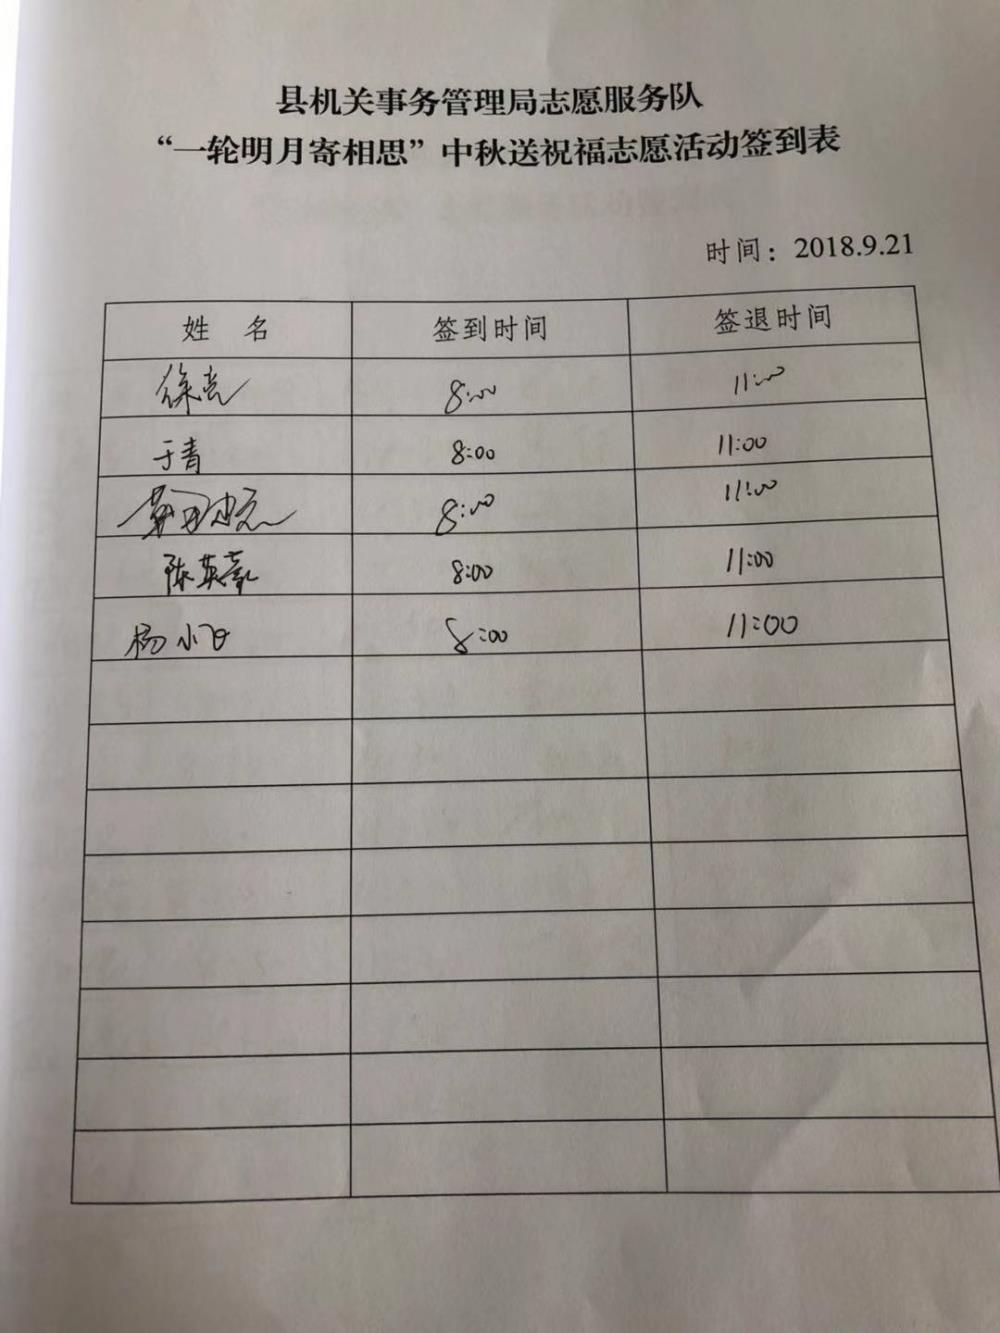 县机关事务管理局志愿服务队
“一轮明月寄相思”中秋送祝福志愿活动签到表
时间：2018.9.21
姓 名 签到时间 签退时间
徐亮 8:00 11:00
于青 8:00 11:00
8:00 11:00
陈英豪 8:00 11:00
杨小 8:00 11:00